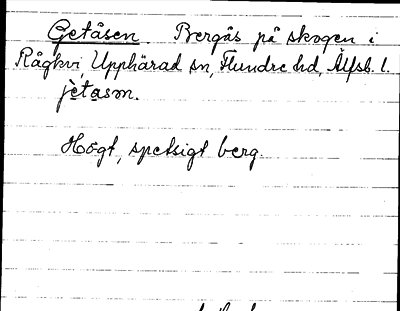 Getåsen. Bergås på skogen i
Rågkvi, Upphärad sn, Flundre hd, Älfsb. l.
jètasm.
Högt, spetsigt berg.